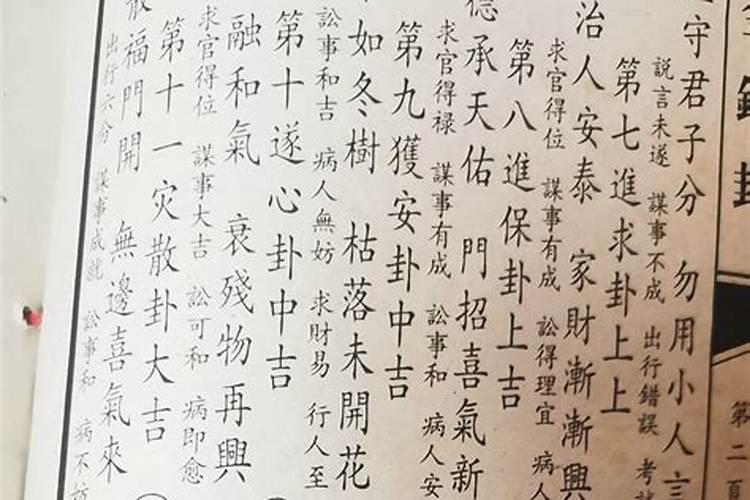 守君子分 勿用小人言
説言未遂 謀事不成 出行錯誤 考
第七進求卦上上
治人安泰 家財漸漸興
求官得位 謀事有成 訟得理宜 病人
第八進保卦上吉
德承天佑 門招喜氣新
求官得禄 謀事有成 訟事和 病人安
第九獲安卦中吉
如冬樹 枯落未開花
訟事和吉 病人無妨 求財易 行人至
第十遂心卦中吉
融和氣 衰殘物再興
求官得位 謀事大吉 訟可和 病即愈
第十一灾散卦大吉
福門開 無邊喜氣來
出行六分 謀事成就 訟事和 病不妨
第二頁